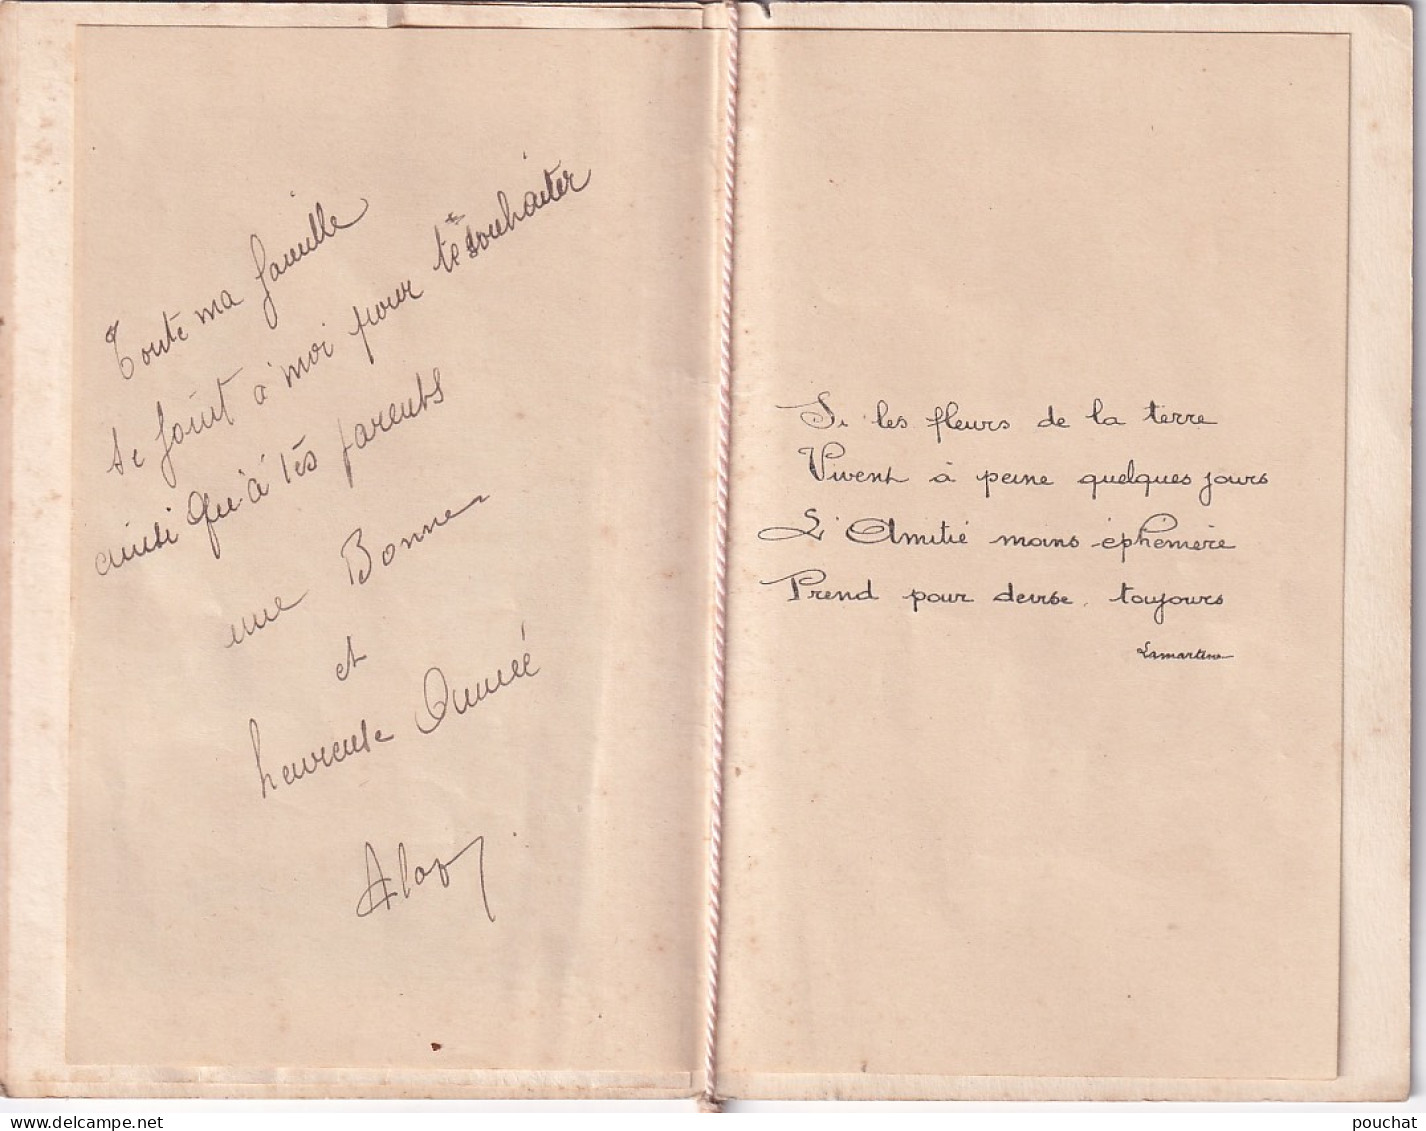 Toute ma famille
se joint à moi pour te souhaiter
ainsi qu'à tes parents
une Bonne
et
heureuse Année
Si les fleurs de la terre
Vivent à peine quelques jours
L'Amitié moins éphémère
Prend pour devise, toujours
Lamartine
www.delcampe.net
pouchat